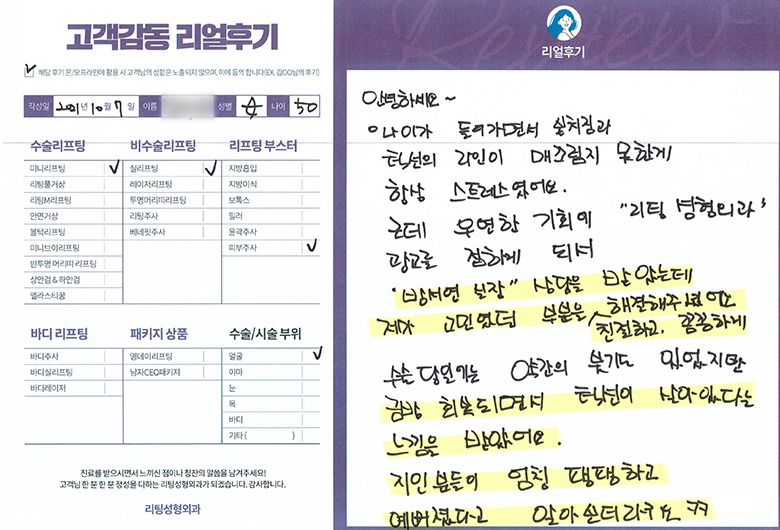 고객감동 리얼후기
해당 후기 온/오프라인에 활용 시 고객님의 성함은 노출되지 않으며, 이에 동의 합니다(EX. 김OO님의 후기)
작성일 2021년 10월 7일 이름 성별 여 나이 50
수술리프팅
미니리프팅
리팅풀거상
리팅M리프팅
안면거상
볼턱리프팅
미니브이리프팅
반투명 머리띠 리프팅
상안검 & 하안검
엘라스티꿈
비수술리프팅
실리프팅
레이저리프팅
투명머리띠리프팅
리팅주사
베네핏주사
리프팅 부스터
지방흡입
지방이식
보톡스
필러
윤곽주사
피부주사
바디 리프팅
바디주사
바디실리프팅
바디레이저
패키지 상품
영네이리프팅
남자CEO패키지
수술/시술 부위
얼굴
이마
눈
목
바디
기타 ( )
진료를 받으시면서 느끼신 점이나 칭찬의 말씀을 남겨주세요!
고객님 한 분 한 분 정성을 다하는 리팅성형외과가 되겠습니다. 감사합니다.
리팅성형외과
Review
리얼후기
안녕하세요~
나이가 들어가면서 살처짐과
턱선의 라인이 매끄럽지 못한게
항상 스트레스였어요.
근데 우연한 기회에 "리팅 성형외과"
광고를 접하게 되서
"방서연 실장" 상담을 받았는데
제가 고민였던 부분을 해결해주셨어요
친절하고, 꼼꼼하게
수술 당일에는 약간의 붓기도 있었지만
금방 회복되면서 턱선이 살아있다는
느낌을 받았어요.
지인분들이 엄청 탱탱하고
예뻐졌다고 알아보더라구요 ㅋㅋ